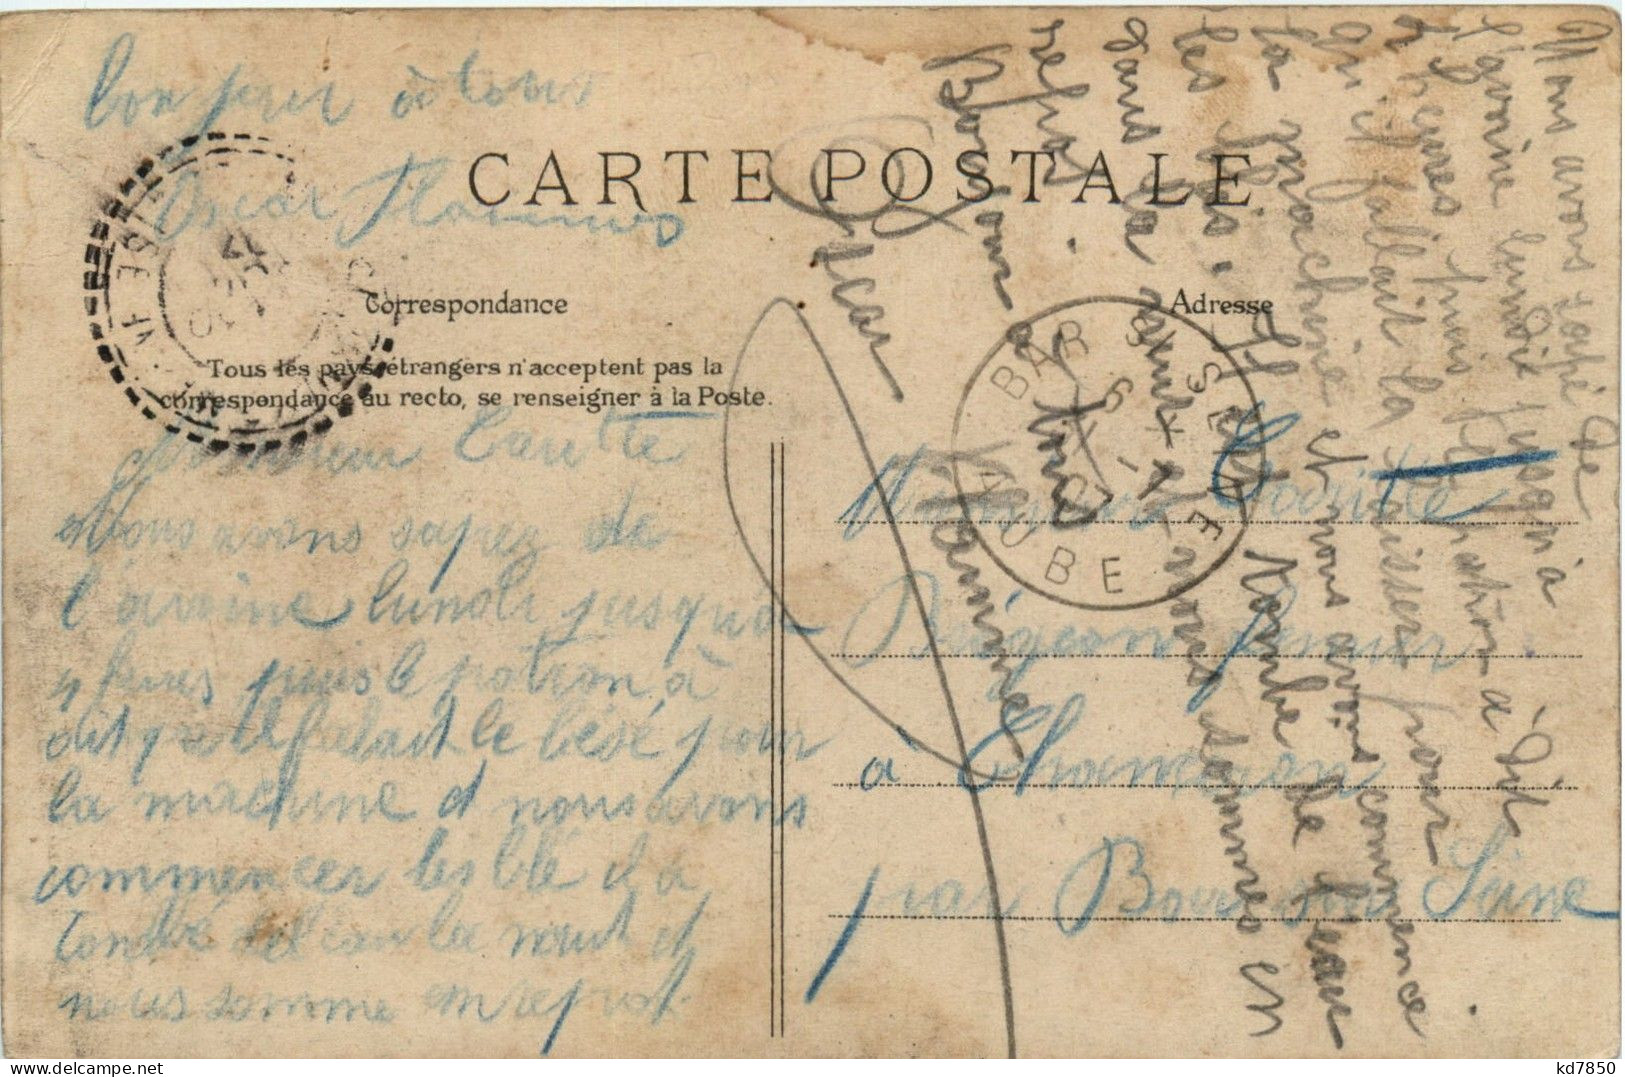 bonjour à tous
Oscar
CARTE POSTALE
Correspondance
Adresse
Tous les pays étrangers n'acceptent pas la
correspondance au recto, se renseigner à la Poste.
Monsieur Coutte
Nous avons sapez de
l'avoine lundi jusqu'à
4 heures puis le patron à
dit qu'il falait le
la machine et nous avons
commencer les blé il a
tombé de l'eau la nuit et
nous somme en repost
Monsieur
à
par Bar sur Seine
BAR S SEINE
AUBE
Nous avons sapé de
l'avoine lundi jusqu'à
4 heures puis le patron a dit
qu'il fallait la laisser pour
la machine et nous avons commencé
les blés. Il est tombé de l'eau
dans la nuit et nous sommes en
repos.
Bonjour à tous
Oscar
kd7850